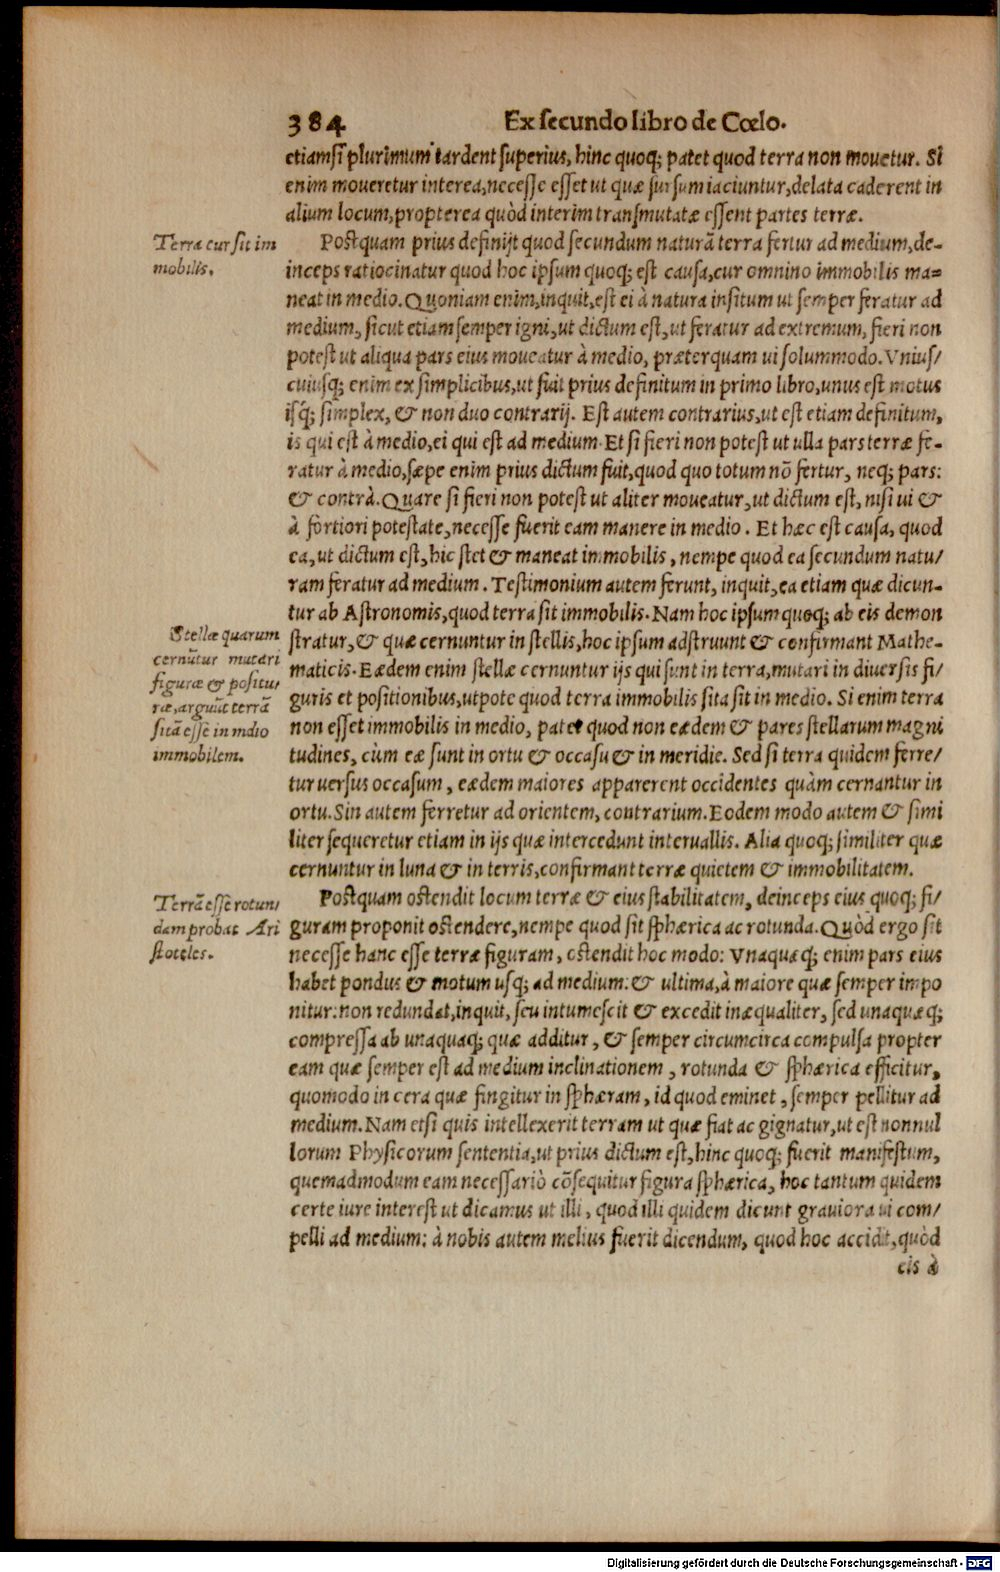 384 Ex secundo libro de Cœlo.
etiamsi plurimum tardent superius, hinc quoq; patet quod terra non mouetur. Si
enim moueretur interea, necesse esset ut quæ sursum iaciuntur, delata caderent in
alium locum, propterea quòd interim transmutatæ essent partes terræ.
Terra cur sit im
mobilis.
Postquam prius definijt quod secundum naturã terra fertur ad medium, de-
inceps ratiocinatur quod hoc ipsum quoq; est causa, cur omnino immobilis ma=
neat in medio. Quoniam enim, inquit, est ei à natura insitum ut semper feratur ad
medium, sicut etiam semper igni, ut dictum est, ut feratur ad extremum, fieri non
potest ut aliqua pars eius moueatur à medio, præterquam ui solummodo. Vnius/
cuiusq; enim ex simplicibus, ut fuit prius definitum in primo libro, unus est motus
isq́; simplex, & non duo contrarij. Est autem contrarius, ut est etiam definitum,
is qui est à medio, ei qui est ad medium. Et si fieri non potest ut ulla pars terræ fe-
ratur à medio, sæpe enim prius dictum fuit, quod quo totum nõ fertur, neq; pars:
& contrà. Quare si fieri non potest ut aliter moueatur, ut dictum est, nisi ui &
à fortiori potestate, necesse fuerit eam manere in medio. Et hæc est causa, quod
ea, ut dictum est, hic stet & maneat immobilis, nempe quod ea secundum natu/
ram feratur ad medium. Testimonium autem ferunt, inquit, ea etiam quæ dicun-
tur ab Astronomis, quod terra sit immobilis. Nam hoc ipsum quoq; ab eis demon
Stellæ quarum
cernũtur mutari
figuræ & positu/
ræ, arguũt terrã
sitã esse in mdio
immobilem.
stratur, & quæ cernuntur in stellis, hoc ipsum adstruunt & confirmant Mathe-
maticis. Eædem enim stellæ cernuntur ijs qui sunt in terra, mutari in diuersis fi/
guris et positionibus, utpote quod terra immobilis sita sit in medio. Si enim terra
non esset immobilis in medio, patet quod non eædem & pares stellarum magni
tudines, cùm eæ sunt in ortu & occasu & in meridie. Sed si terra quidem ferre/
tur uersus occasum, eædem maiores apparerent occidentes quàm cernantur in
ortu. Sin autem ferretur ad orientem, contrarium. Eodem modo autem & simi
liter sequeretur etiam in ijs quæ intercedunt interuallis. Alia quoq; similiter quæ
cernuntur in luna & in terris, confirmant terræ quietem & immobilitatem.
Terrã esse rotun/
dam probat Ari
stoteles.
Postquam ostendit locum terræ & eius stabilitatem, deinceps eius quoq; fi/
guram proponit ostendere, nempe quod sit sphærica ac rotunda. Quòd ergo sit
necesse hanc esse terræ figuram, ostendit hoc modo: Vnaquæq; enim pars eius
habet pondus & motum usq; ad medium: & ultima, à maiore quæ semper impo
nitur: non redundat, inquit, seu intumescit & excedit inæqualiter, sed unaquæq;
compressa ab unaquaq; quæ additur, & semper circumcirca compulsa propter
eam quæ semper est ad medium inclinationem, rotunda & sphærica efficitur,
quomodo in cera quæ fingitur in sphæram, id quod eminet, semper pellitur ad
medium. Nam etsi quis intellexerit terram ut quæ fiat ac gignatur, ut est nonnul
lorum Physicorum sententia, ut prius dictum est, hinc quoq; fuerit manifestum,
quemadmodum eam necessariò cõsequitur figura sphærica, hoc tantum quidem
certe iure interest ut dicamus ut illi, quod illi quidem dicunt grauiora ui com/
pelli ad medium: à nobis autem melius fuerit dicendum, quod hoc accidit, quòd
eis à
Digitalisierung gefördert durch die Deutsche Forschungsgemeinschaft - DFG